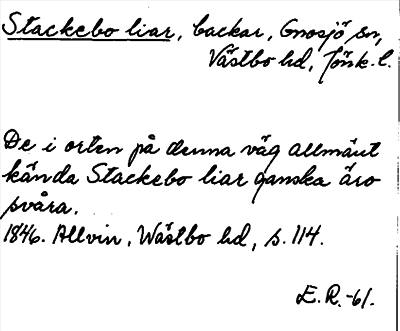 Stackebo liar, backar, Gnosjö sn,
Västbo hd, Jönk. l.
De i orten på denna väg allmänt
kända Stackebo liar ganska äro
svåra.
1846. Allvin, Wästbo hd, s. 114.
E. R. -61.